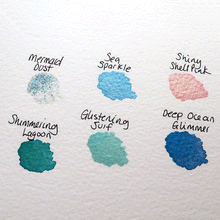 Mermaid
Dust
Sea
Sparkle
Shiny
Shell Pink
Shimmering
Lagoon
Glistening
Surf
Deep Ocean
Glimmer